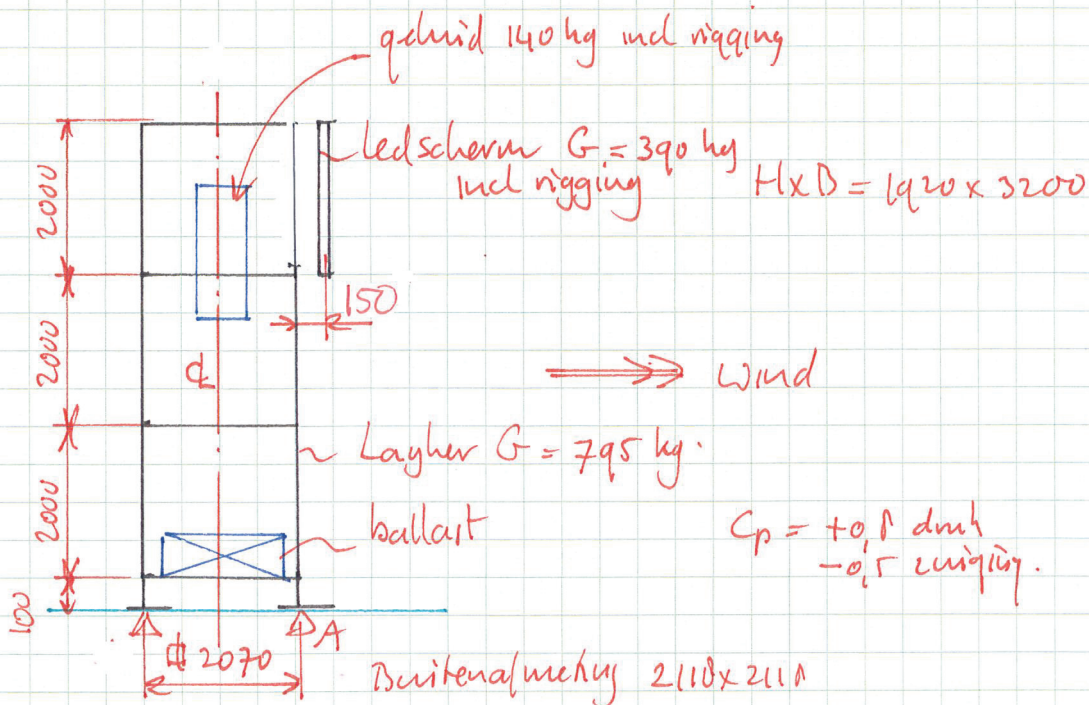 geluid 140 kg incl rigging
ledscherm G = 390 kg
incl rigging
HxB = 1920 x 3200
2000
150
2000
Wind
Layher G = 795 kg.
2000
ballast
Cp = +0,8 druk
-0,5 zuiging.
100
A
2070
Buitenafmeting 2118x2118